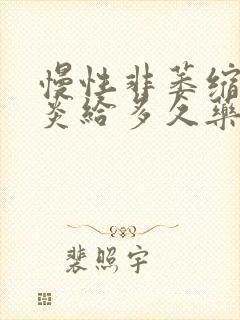 慢性非萎缩
炎给多久药
裴照宇